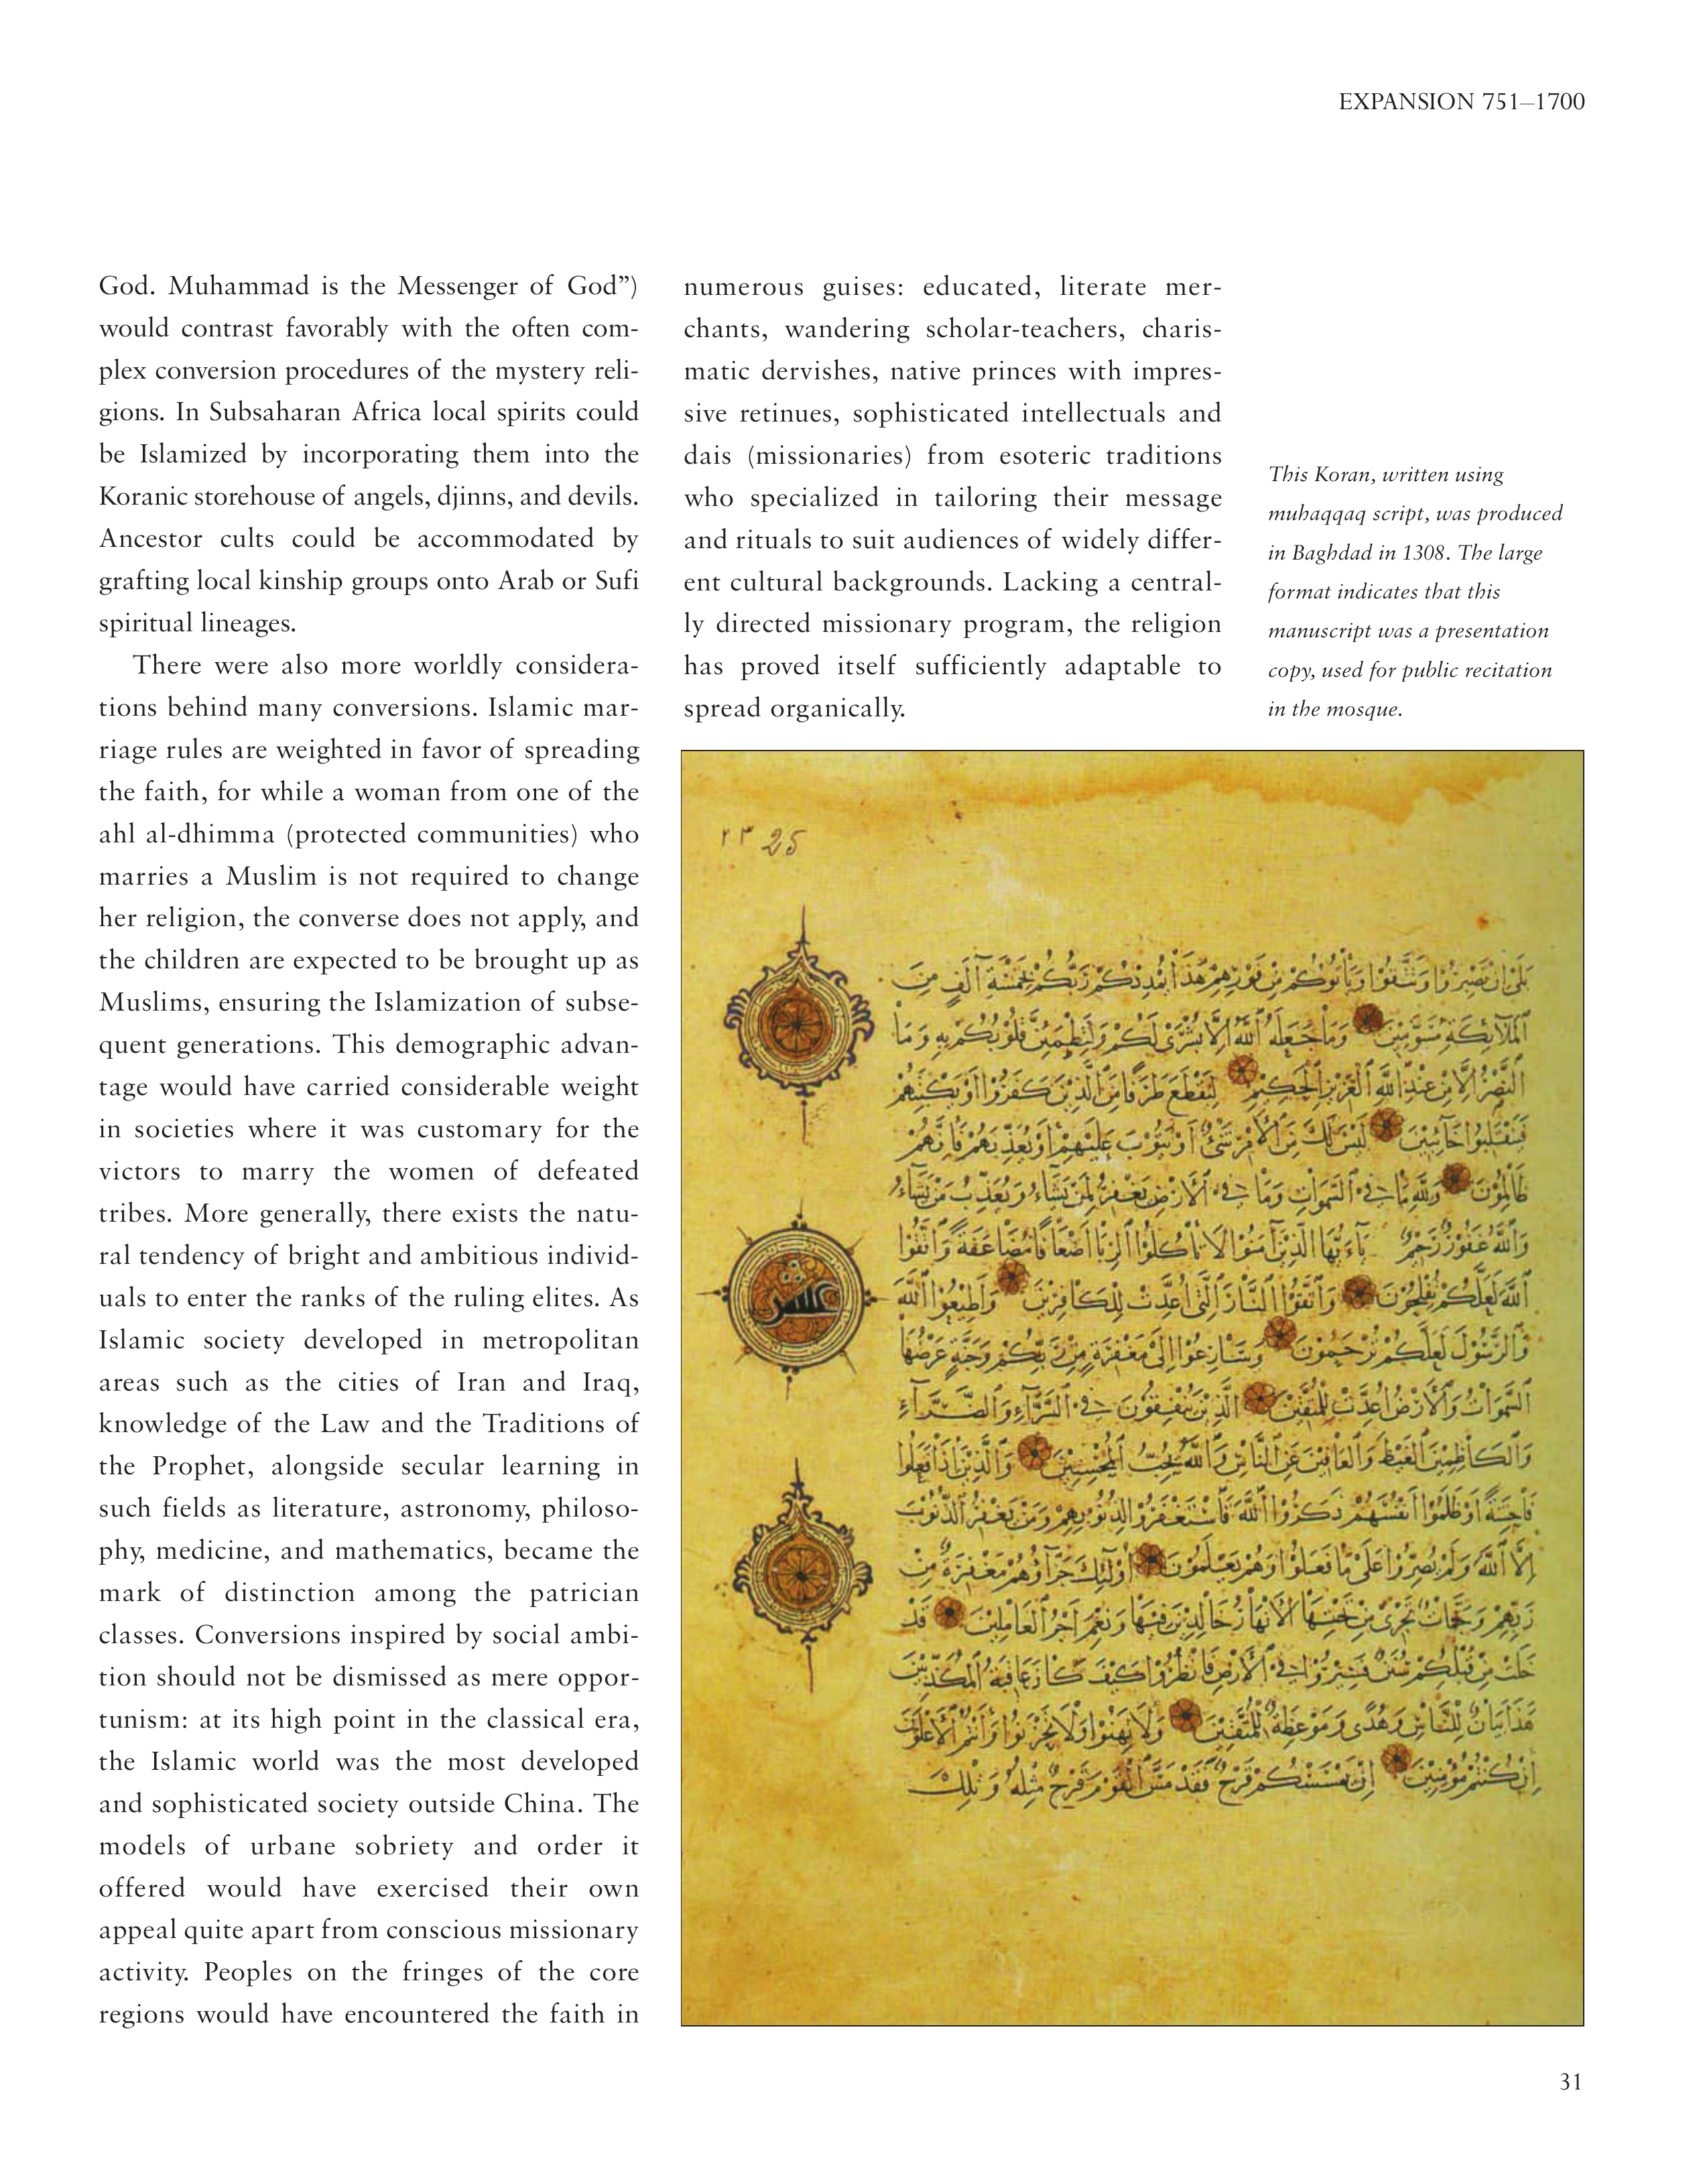 EXPANSION 751–1700
God. Muhammad is the Messenger of God”)
would contrast favorably with the often com-
plex conversion procedures of the mystery reli-
gions. In Subsaharan Africa local spirits could
be Islamized by incorporating them into the
Koranic storehouse of angels, djinns, and devils.
Ancestor cults could be accommodated by
grafting local kinship groups onto Arab or Sufi
spiritual lineages.
There were also more worldly considera-
tions behind many conversions. Islamic mar-
riage rules are weighted in favor of spreading
the faith, for while a woman from one of the
ahl al-dhimma (protected communities) who
marries a Muslim is not required to change
her religion, the converse does not apply, and
the children are expected to be brought up as
Muslims, ensuring the Islamization of subse-
quent generations. This demographic advan-
tage would have carried considerable weight
in societies where it was customary for the
victors to marry the women of defeated
tribes. More generally, there exists the natu-
ral tendency of bright and ambitious individ-
uals to enter the ranks of the ruling elites. As
Islamic society developed in metropolitan
areas such as the cities of Iran and Iraq,
knowledge of the Law and the Traditions of
the Prophet, alongside secular learning in
such fields as literature, astronomy, philoso-
phy, medicine, and mathematics, became the
mark of distinction among the patrician
classes. Conversions inspired by social ambi-
tion should not be dismissed as mere oppor-
tunism: at its high point in the classical era,
the Islamic world was the most developed
and sophisticated society outside China. The
models of urbane sobriety and order it
offered would have exercised their own
appeal quite apart from conscious missionary
activity. Peoples on the fringes of the core
regions would have encountered the faith in
numerous guises: educated, literate mer-
chants, wandering scholar-teachers, charis-
matic dervishes, native princes with impres-
sive retinues, sophisticated intellectuals and
dais (missionaries) from esoteric traditions
who specialized in tailoring their message
and rituals to suit audiences of widely differ-
ent cultural backgrounds. Lacking a central-
ly directed missionary program, the religion
has proved itself sufficiently adaptable to
spread organically.
This Koran, written using
muhaqqaq script, was produced
in Baghdad in 1308. The large
format indicates that this
manuscript was a presentation
copy, used for public recitation
in the mosque.
٢٣ 25
بلى ان تصبروا وتتقوا ويأتوكم من فورهم هذا يمددكم ربكم بخمسة آلف من
الملائكة مسومين وما جعله الله الا بشرى لكم ولتطمئن قلوبكم به وما
النصر الا من عند الله العزيز الحكيم ليقطع طرفا من الذين كفروا او يكبتهم
فينقلبوا خائبين ليس لك من الامر شئ او يتوب عليهم او يعذبهم فانهم
ظالمون ولله ما في السموات وما في الارض يغفر لمن يشاء ويعذب من يشاء
والله غفور رحيم ياءيها الذين آمنوا لا تأكلوا الربا اضعافا مضاعفة واتقوا
الله لعلكم تفلحون واتقوا النار التي اعدت للكافرين واطيعوا الله
والرسول لعلكم ترحمون وسارعوا الى مغفرة من ربكم وجنة عرضها
السموات والارض اعدت للمتقين الذين ينفقون في السراء والضراء
والكاظمين الغيظ والعافين عن الناس والله يحب المحسنين والذين اذا فعلوا
فاحشة او ظلموا انفسهم ذكروا الله فاستغفروا لذنوبهم ومن يغفر الذنوب
الا الله ولم يصروا على ما فعلوا وهم يعلمون اولئك جزاؤهم مغفرة من
ربهم وجنات تجري من تحتها الانهار خالدين فيها ونعم اجر العاملين قد
خلت من قبلكم سنن فسيروا في الارض فانظروا كيف كان عاقبة المكذبين
هذا بيان للناس وهدى وموعظة للمتقين ولا تهنوا ولا تحزنوا وانتم الاعلون
ان كنتم مؤمنين ان يمسسكم قرح فقد مس القوم قرح مثله وتلك
عشر
31